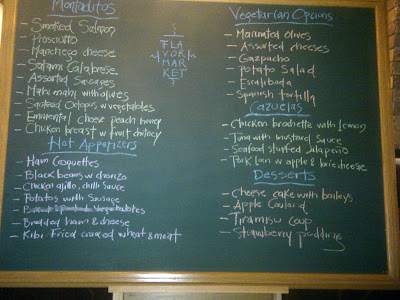 Montaditos
- Smoked Salmon
- Prosciutto
- Manchego cheese
- Salami Calabrese
- Assorted Sausages
- Mahi mahi with olives
- Sauteed Octopus w vegetables
- Emmental Cheese Peach honey
- Chicken breast w fruit chutney
Hot Appetizers
- Ham Croquettes
- Black beans w chorizo
- Chicken ajillo, chilli sauce
- Potatos with Sausage
- Vegetables
- Breaded ham & cheese
- Kibi-Fried cracked wheat & meat
FLA
VOR
MAR
KET
Vegetarian Options
- Marinated olives
- Assorted cheeses
- Gazpacho
- Potato Salad
- Escalibada
- Spanish tortilla
Cazuelas
- Chicken brochette with lemon
- Tuna with mustard sauce
- Seafood stuffed Jalapeño
- Pork loin w apple & brie cheese
Desserts
- Cheese cake with baileys
- Apple
- Tiramisu Coup
- Strawberry pudding